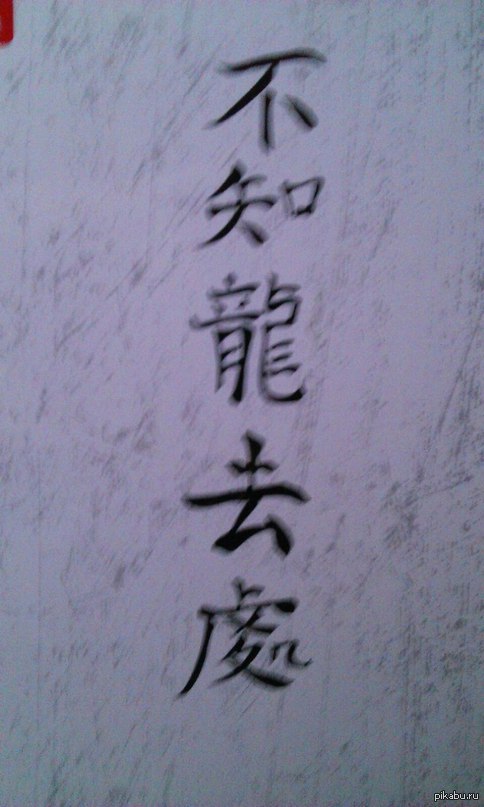 不知龍去處
pikabu.ru